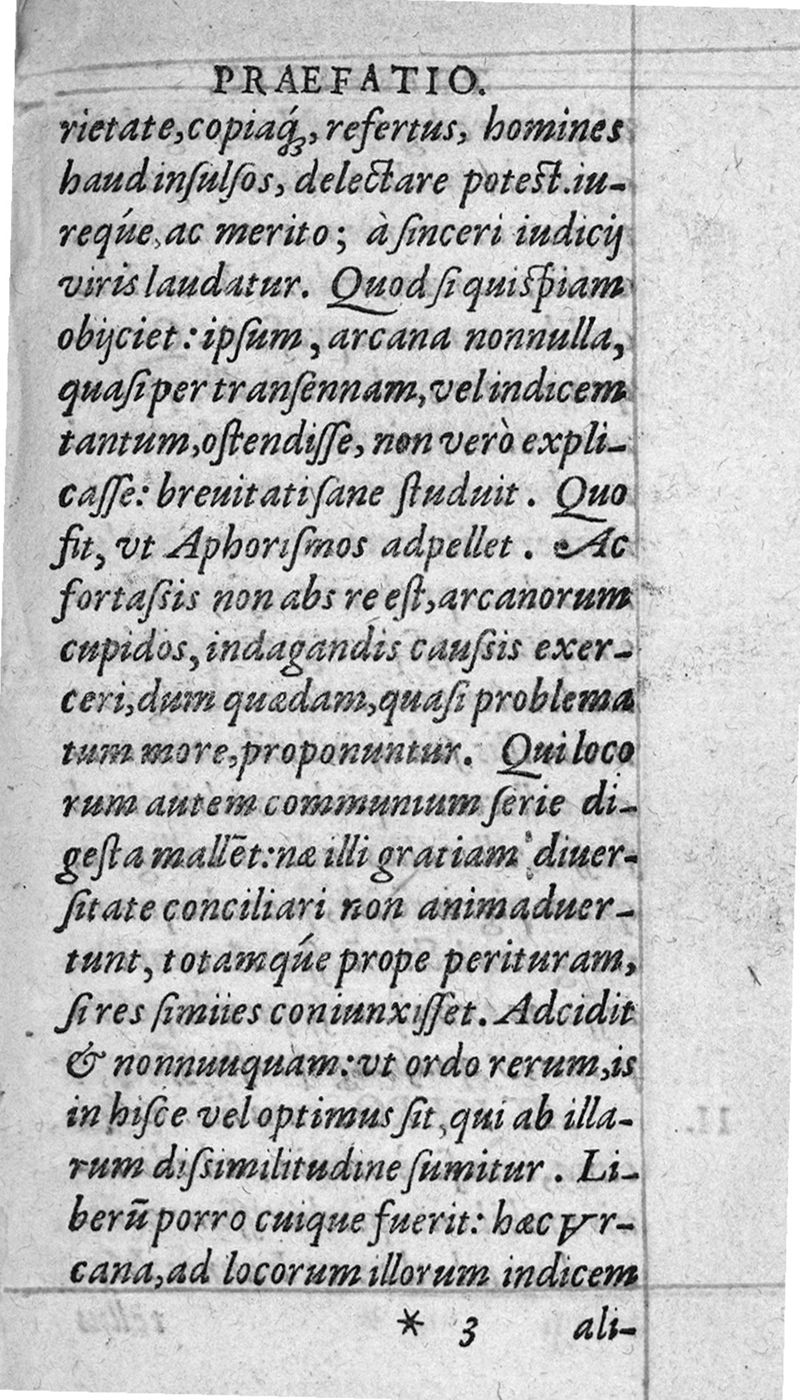 PRAEFATIO.
rietate, copiaq́ꝫ, refertus, homines
haud inſulſos, delectare poteſt. iu-
reqúe, ac merito; à ſinceri iudicij
viris laudatur. Quod ſi quiſpiam
obijciet: ipſum, arcana nonnulla,
quaſi per tranſennam, vel indicem
tantum, oſtendiſſe, non verò expli-
caſſe: breuitati ſane ſtuduit. Quo
fit, vt Aphoriſmos adpellet. Ac
fortaſsis non abs re eſt, arcanorum
cupidos, indagandis cauſsis exer-
ceri, dum quædam, quaſi problema
tum more, proponuntur. Qui loco
rum autem communium ſerie di-
geſta mallēt: næ illi gratiam diuer-
ſitate conciliari non animaduer-
tunt, totamqúe prope perituram,
ſi res ſimiies coniunxiſſet. Adcidit
& nonnuuquam: vt ordo rerum, is
in hiſce vel optimus ſit, qui ab illa-
rum diſsimilitudine ſumitur. Li-
berū porro cuique fuerit: hæc yr-
cana, ad locorum illorum indicem
* 3 ali-